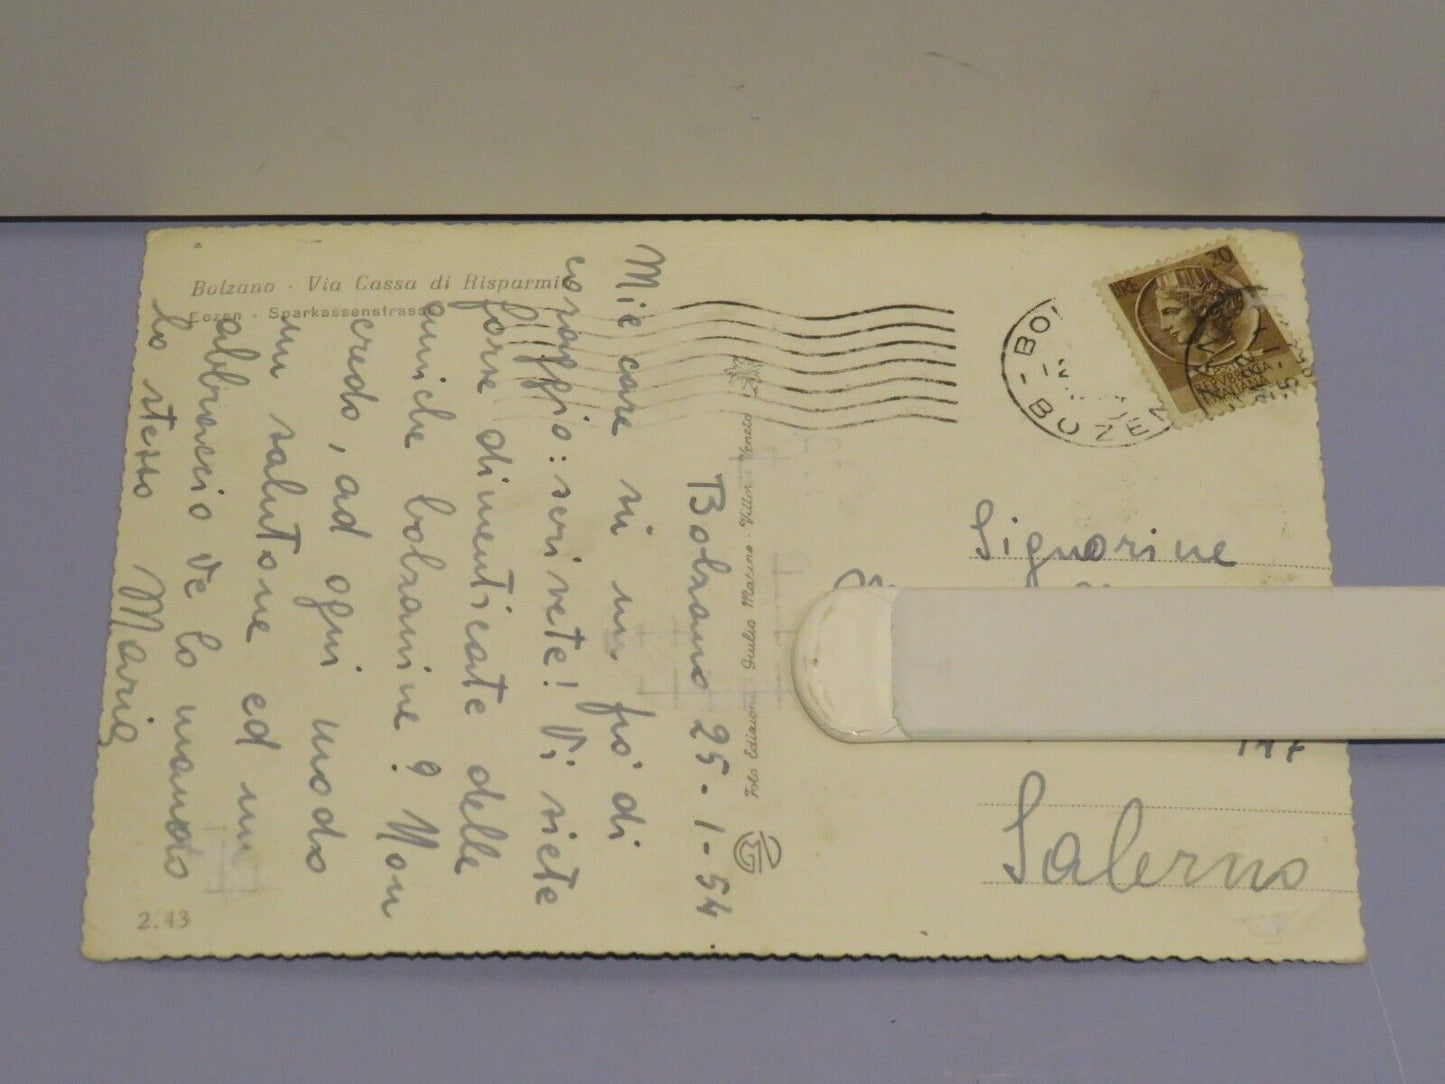 Bolzano - Via Cassa di Risparmio
Bozen - Sparkassenstrasse
Bolzano 25-1-54
Mie care su un pò di
coraggio: scrivete! Vi siete
forse dimenticate delle
amiche bolzanine? Non
credo, ad ogni modo
un salutone ed un
abbraccio ve lo mando
lo stesso Maria
2.43
Foto Edizioni Giulio Marino - Vittorio Veneto
BOZEN
LIRE 20
REPVBBLICA
ITALIANA
Signorine
147
Salerno